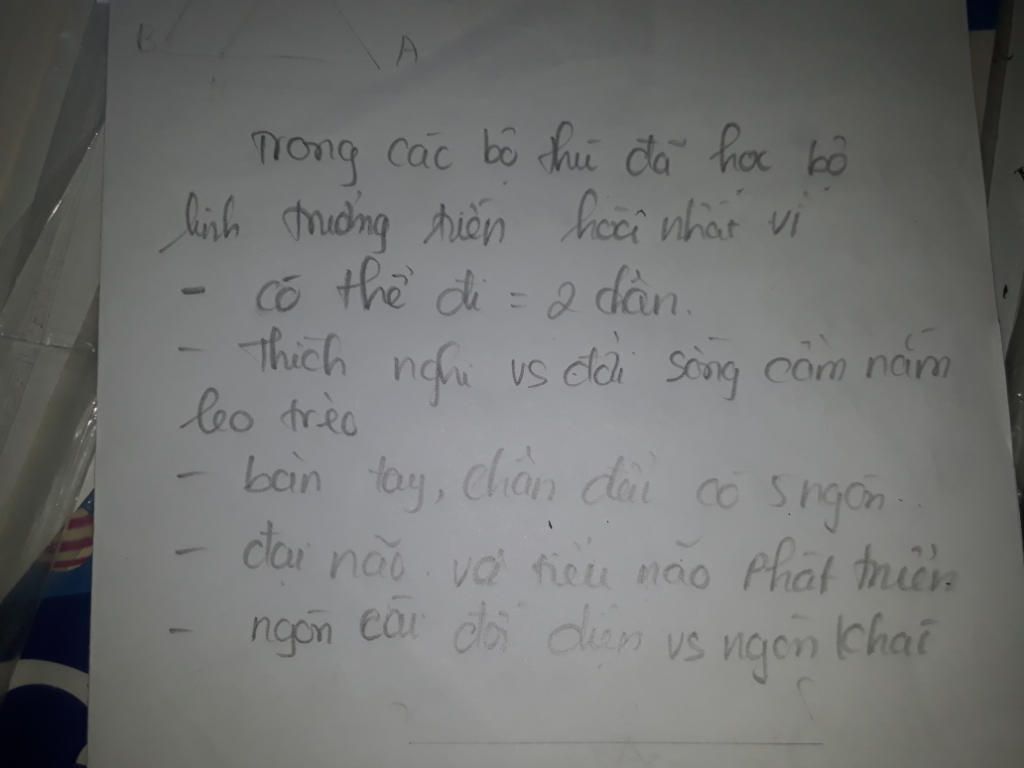 B A
Trong các bộ thú đã học bộ
linh trưởng tiến hoá nhất vì
- có thể đi = 2 chân.
- Thích nghi vs đời sống cầm nắm
leo trèo
- bàn tay, chân dài có 5 ngón.
- đại não và tiểu não phát triển
- ngón cái đối diện vs ngón khác